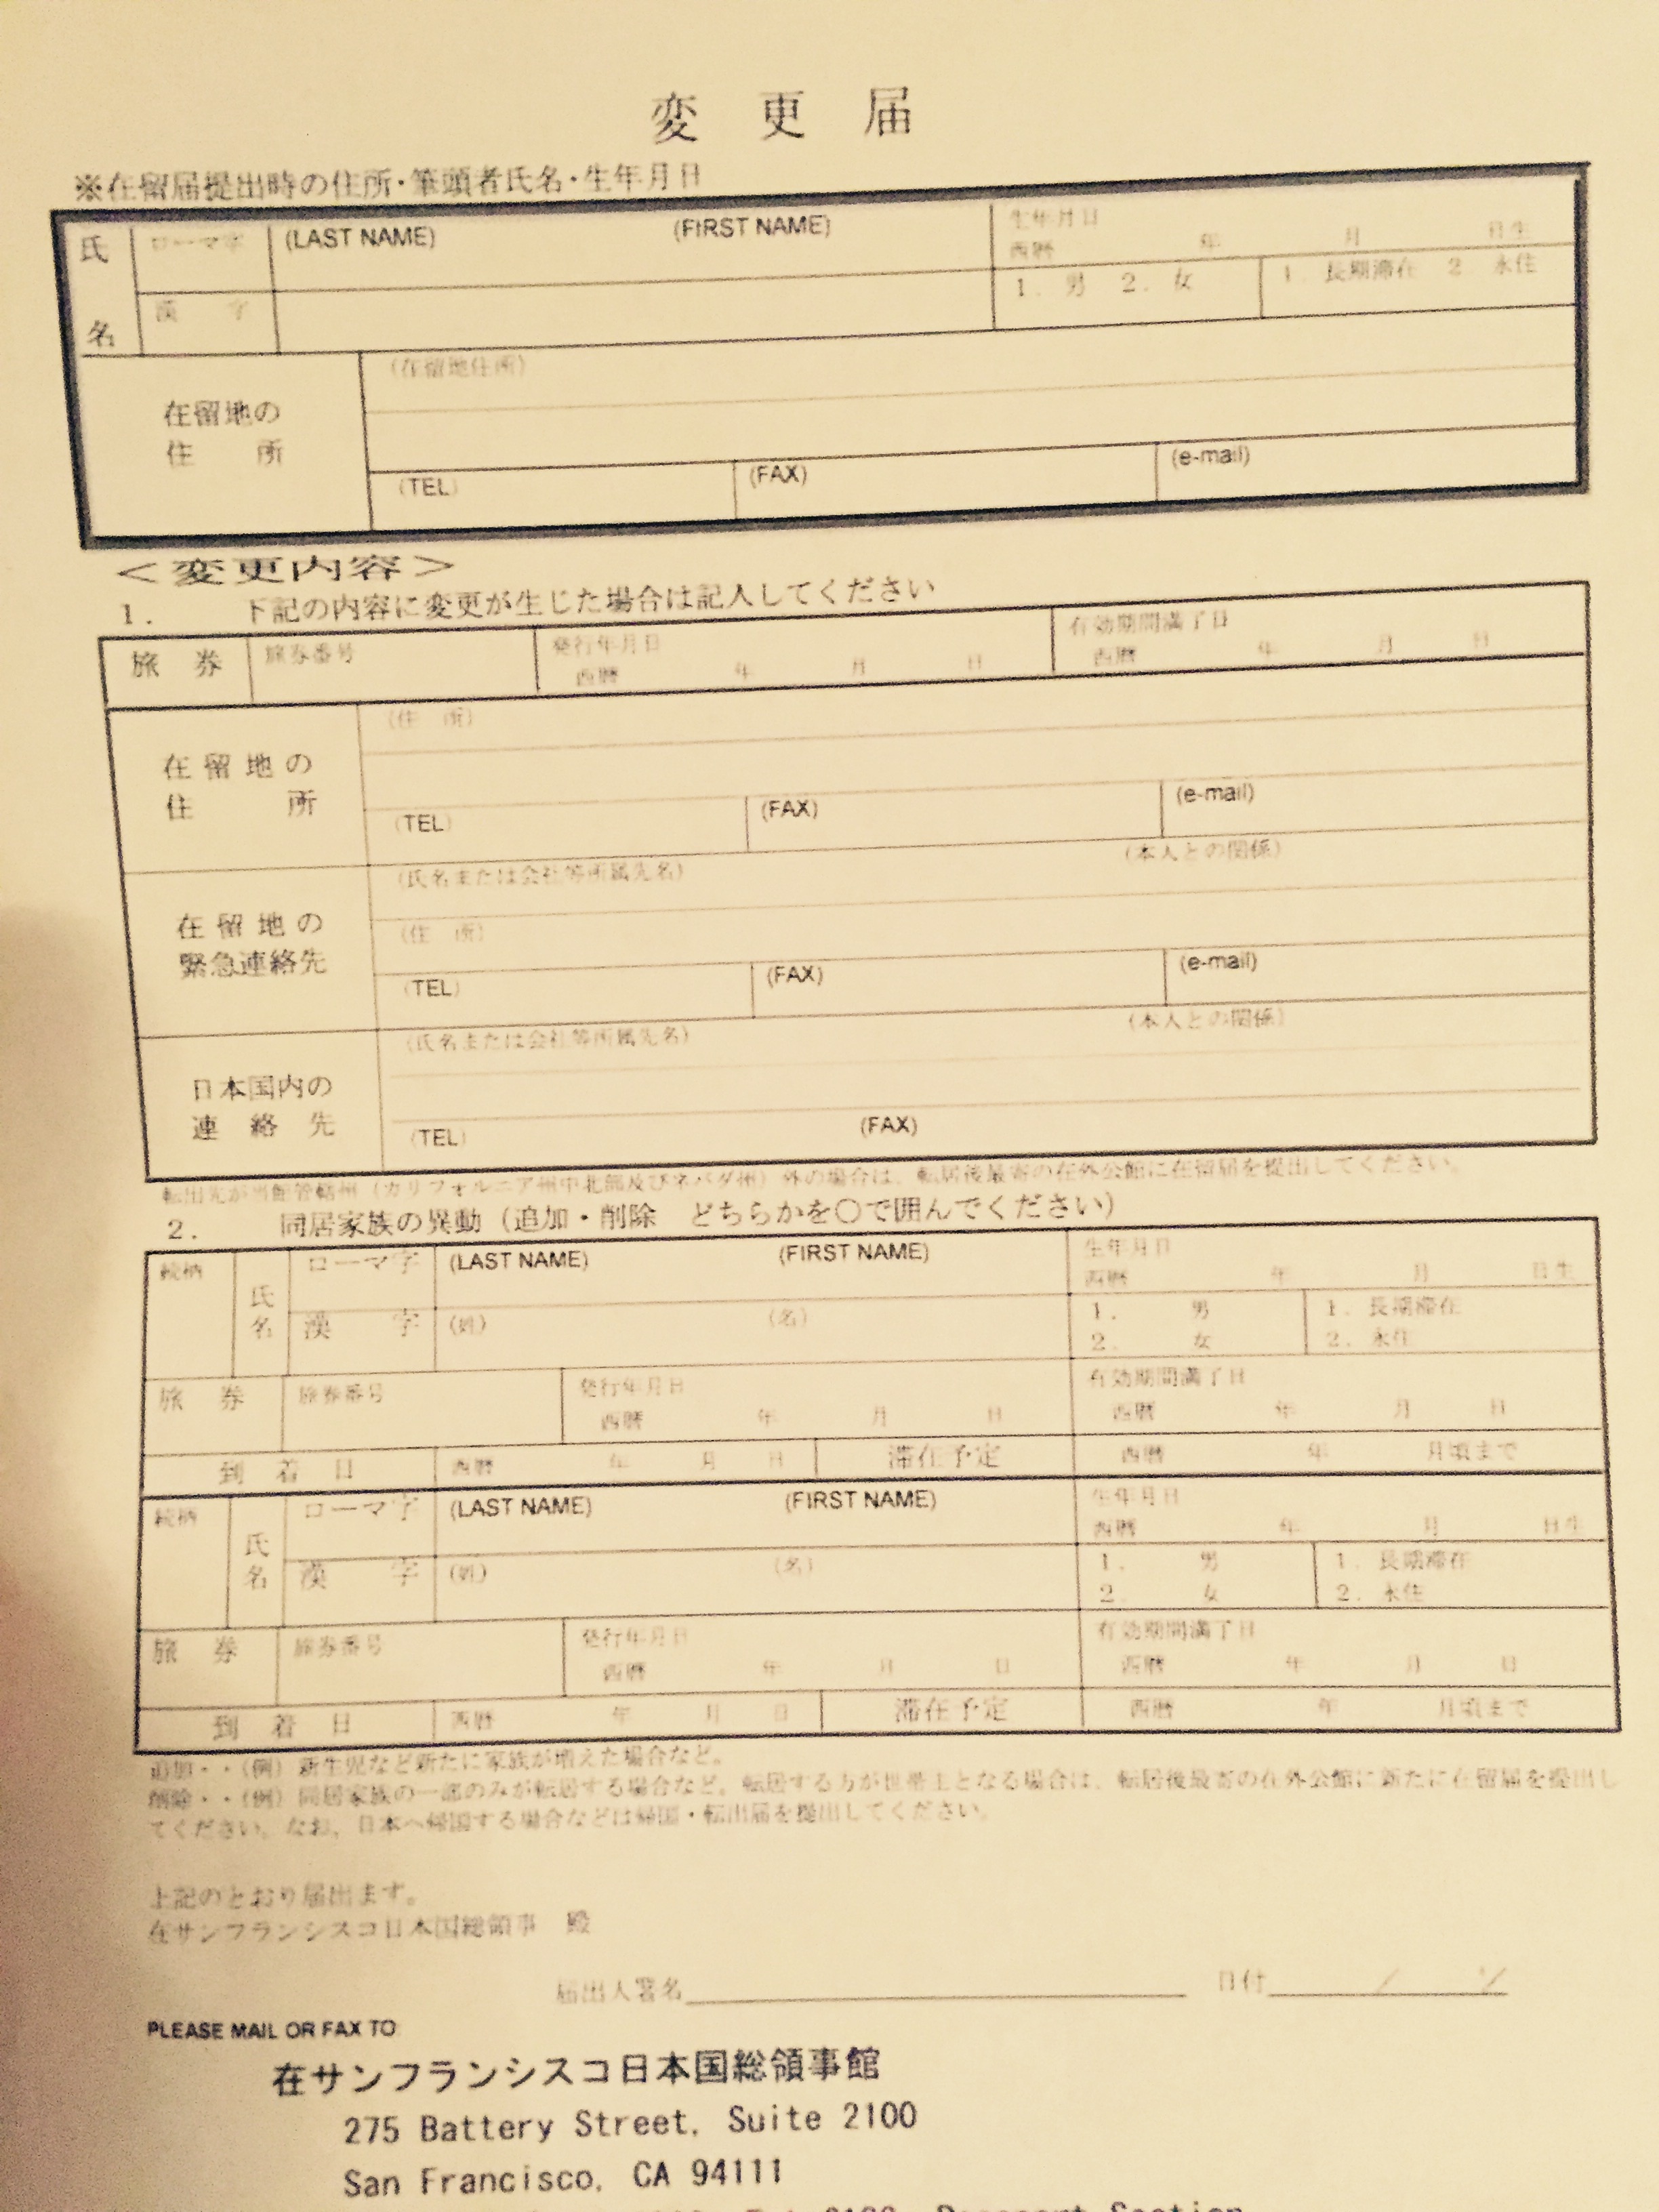 変 更 届
※在留届提出時の住所・筆頭者氏名・生年月日
氏名 ローマ字 (LAST NAME) (FIRST NAME) 生年月日
西暦 年 月 日生
漢 字 1. 男 2. 女 1. 長期滞在 2. 永住
在留地の住 所 (在留地住所)
(TEL) (FAX) (e-mail)
＜変更内容＞
1. 下記の内容に変更が生じた場合は記入してください
旅 券 旅券番号 発行年月日 有効期間満了日
西暦 年 月 日 西暦 年 月 日
在留地の住 所 (住 所)
(TEL) (FAX) (e-mail)
在留地の緊急連絡先 (氏名または会社等所属先名) (本人との関係)
(住 所)
(TEL) (FAX) (e-mail)
日本国内の連 絡 先 (氏名または会社等所属先名) (本人との関係)
(TEL) (FAX)
転出先が当館管轄州（カリフォルニア州中北部及びネバダ州）外の場合は、転居後最寄の在外公館に在留届を提出してください。
2. 同居家族の異動（追加・削除 どちらかを○で囲んでください）
続柄 氏名 ローマ字 (LAST NAME) (FIRST NAME) 生年月日
西暦 年 月 日生
漢 字 (姓) (名) 1. 男 1. 長期滞在
2. 女 2. 永住
旅 券 旅券番号 発行年月日 有効期間満了日
西暦 年 月 日 西暦 年 月 日
到 着 日 西暦 年 月 日 滞在予定 西暦 年 月頃まで
続柄 氏名 ローマ字 (LAST NAME) (FIRST NAME) 生年月日
西暦 年 月 日生
漢 字 (姓) (名) 1. 男 1. 長期滞在
2. 女 2. 永住
旅 券 旅券番号 発行年月日 有効期間満了日
西暦 年 月 日 西暦 年 月 日
到 着 日 西暦 年 月 日 滞在予定 西暦 年 月頃まで
追加・・（例）新生児など新たに家族が増えた場合など。
削除・・（例）同居家族の一部のみが転居する場合など。転居する方が世帯主となる場合は、転居後最寄の在外公館に新たに在留届を提出し
てください。なお、日本へ帰国する場合などは帰国・転出届を提出してください。
上記のとおり届出ます。
在サンフランシスコ日本国総領事 殿
届出人署名 日付 / /
PLEASE MAIL OR FAX TO
在サンフランシスコ日本国総領事館
275 Battery Street, Suite 2100
San Francisco, CA 94111